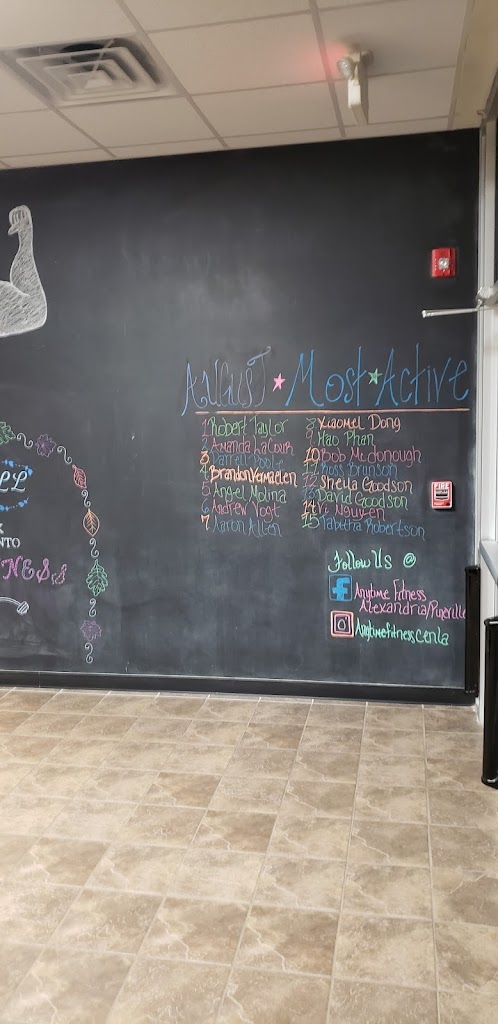 LL
NTO
NESS
AUGUST Most Active
1 Robert Taylor
2 Amanda LaCour
3 Darrell Poole
4 Brandon Vermaelen
5 Angel Molina
6 Andrew Vogt
7 Aaron Allen
8 Xiaomei Dong
9 Hao Phan
10 Bob Mcdonough
11 Ross Brunson
12 Sheila Goodson
13 David Goodson
14 Vi Nguyen
15 Tabitha Robertson
Follow Us @
f Anytime Fitness
Alexandria/Pineville
Anytimefitnesscenla
FIRE